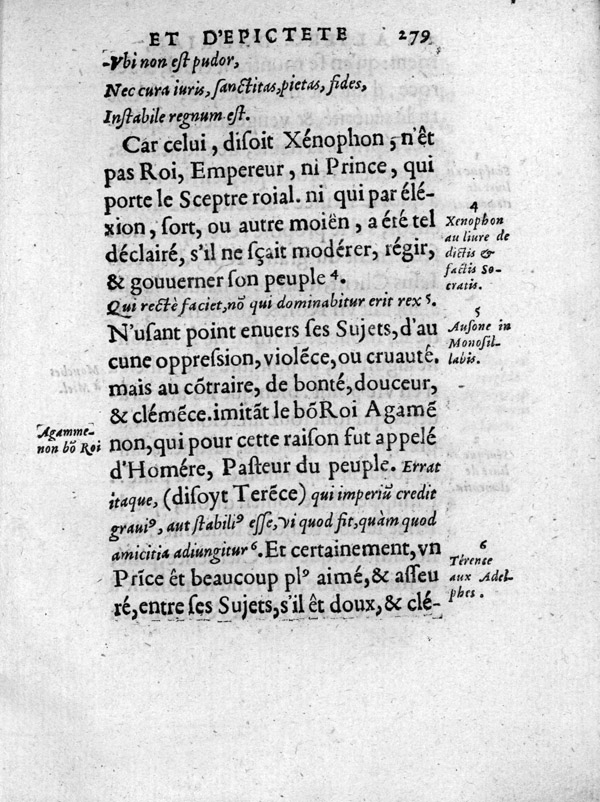 ET D'EPICTETE 279
-Vbi non est pudor,
Nec cura iuris, sanctitas, pietas, fides,
Instabile regnum est.
Car celui, disoit Xénophon, n'êt
pas Roi, Empereur, ni Prince, qui
porte le Sceptre roial. ni qui par élé-
xion, sort, ou autre moiën, a été tel
déclairé, s'il ne sçait modérer, régir,
& gouuerner son peuple 4.
Qui rectè faciet, nõ qui dominabitur erit rex 5.
N'usant point enuers ses Sujets, d'au
cune oppression, violẽce, ou cruauté.
mais au cõtraire, de bonté, douceur,
& clémẽce. imitãt le bõ Roi Agamẽ
non, qui pour cette raison fut appelé
d'Homére, Pasteur du peuple. Errat
itaque, (disoyt Terẽce) qui imperiũ credit
grauiꝰ, aut stabiliꝰ esse, vi quod fit, quàm quod
amicitia adiungitur 6. Et certainement, vn
Prĩce êt beaucoup plꝰ aimé, & asseu
ré, entre ses Sujets, s'il êt doux, & clé-
4
Xenophon
au liure de
dictis &
factis So-
cratis.
5
Ausone in
Monosil-
labis.
Agamme-
non bõ Roi
6
Térence
aux Adel-
phes.